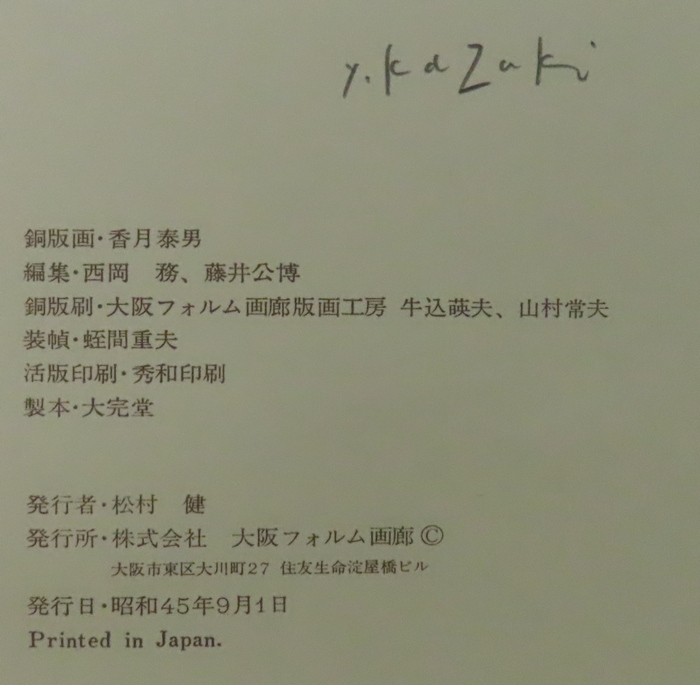 y.kazuki
銅版画・香月泰男
編集・西岡　務、藤井公博
銅版刷・大阪フォルム画廊版画工房 牛込暎夫、山村常夫
装幀・蛭間重夫
活版印刷・秀和印刷
製本・大完堂
発行者・松村　健
発行所・株式会社　大阪フォルム画廊 ©
大阪市東区大川町27 住友生命淀屋橋ビル
発行日・昭和45年9月1日
Printed in Japan.